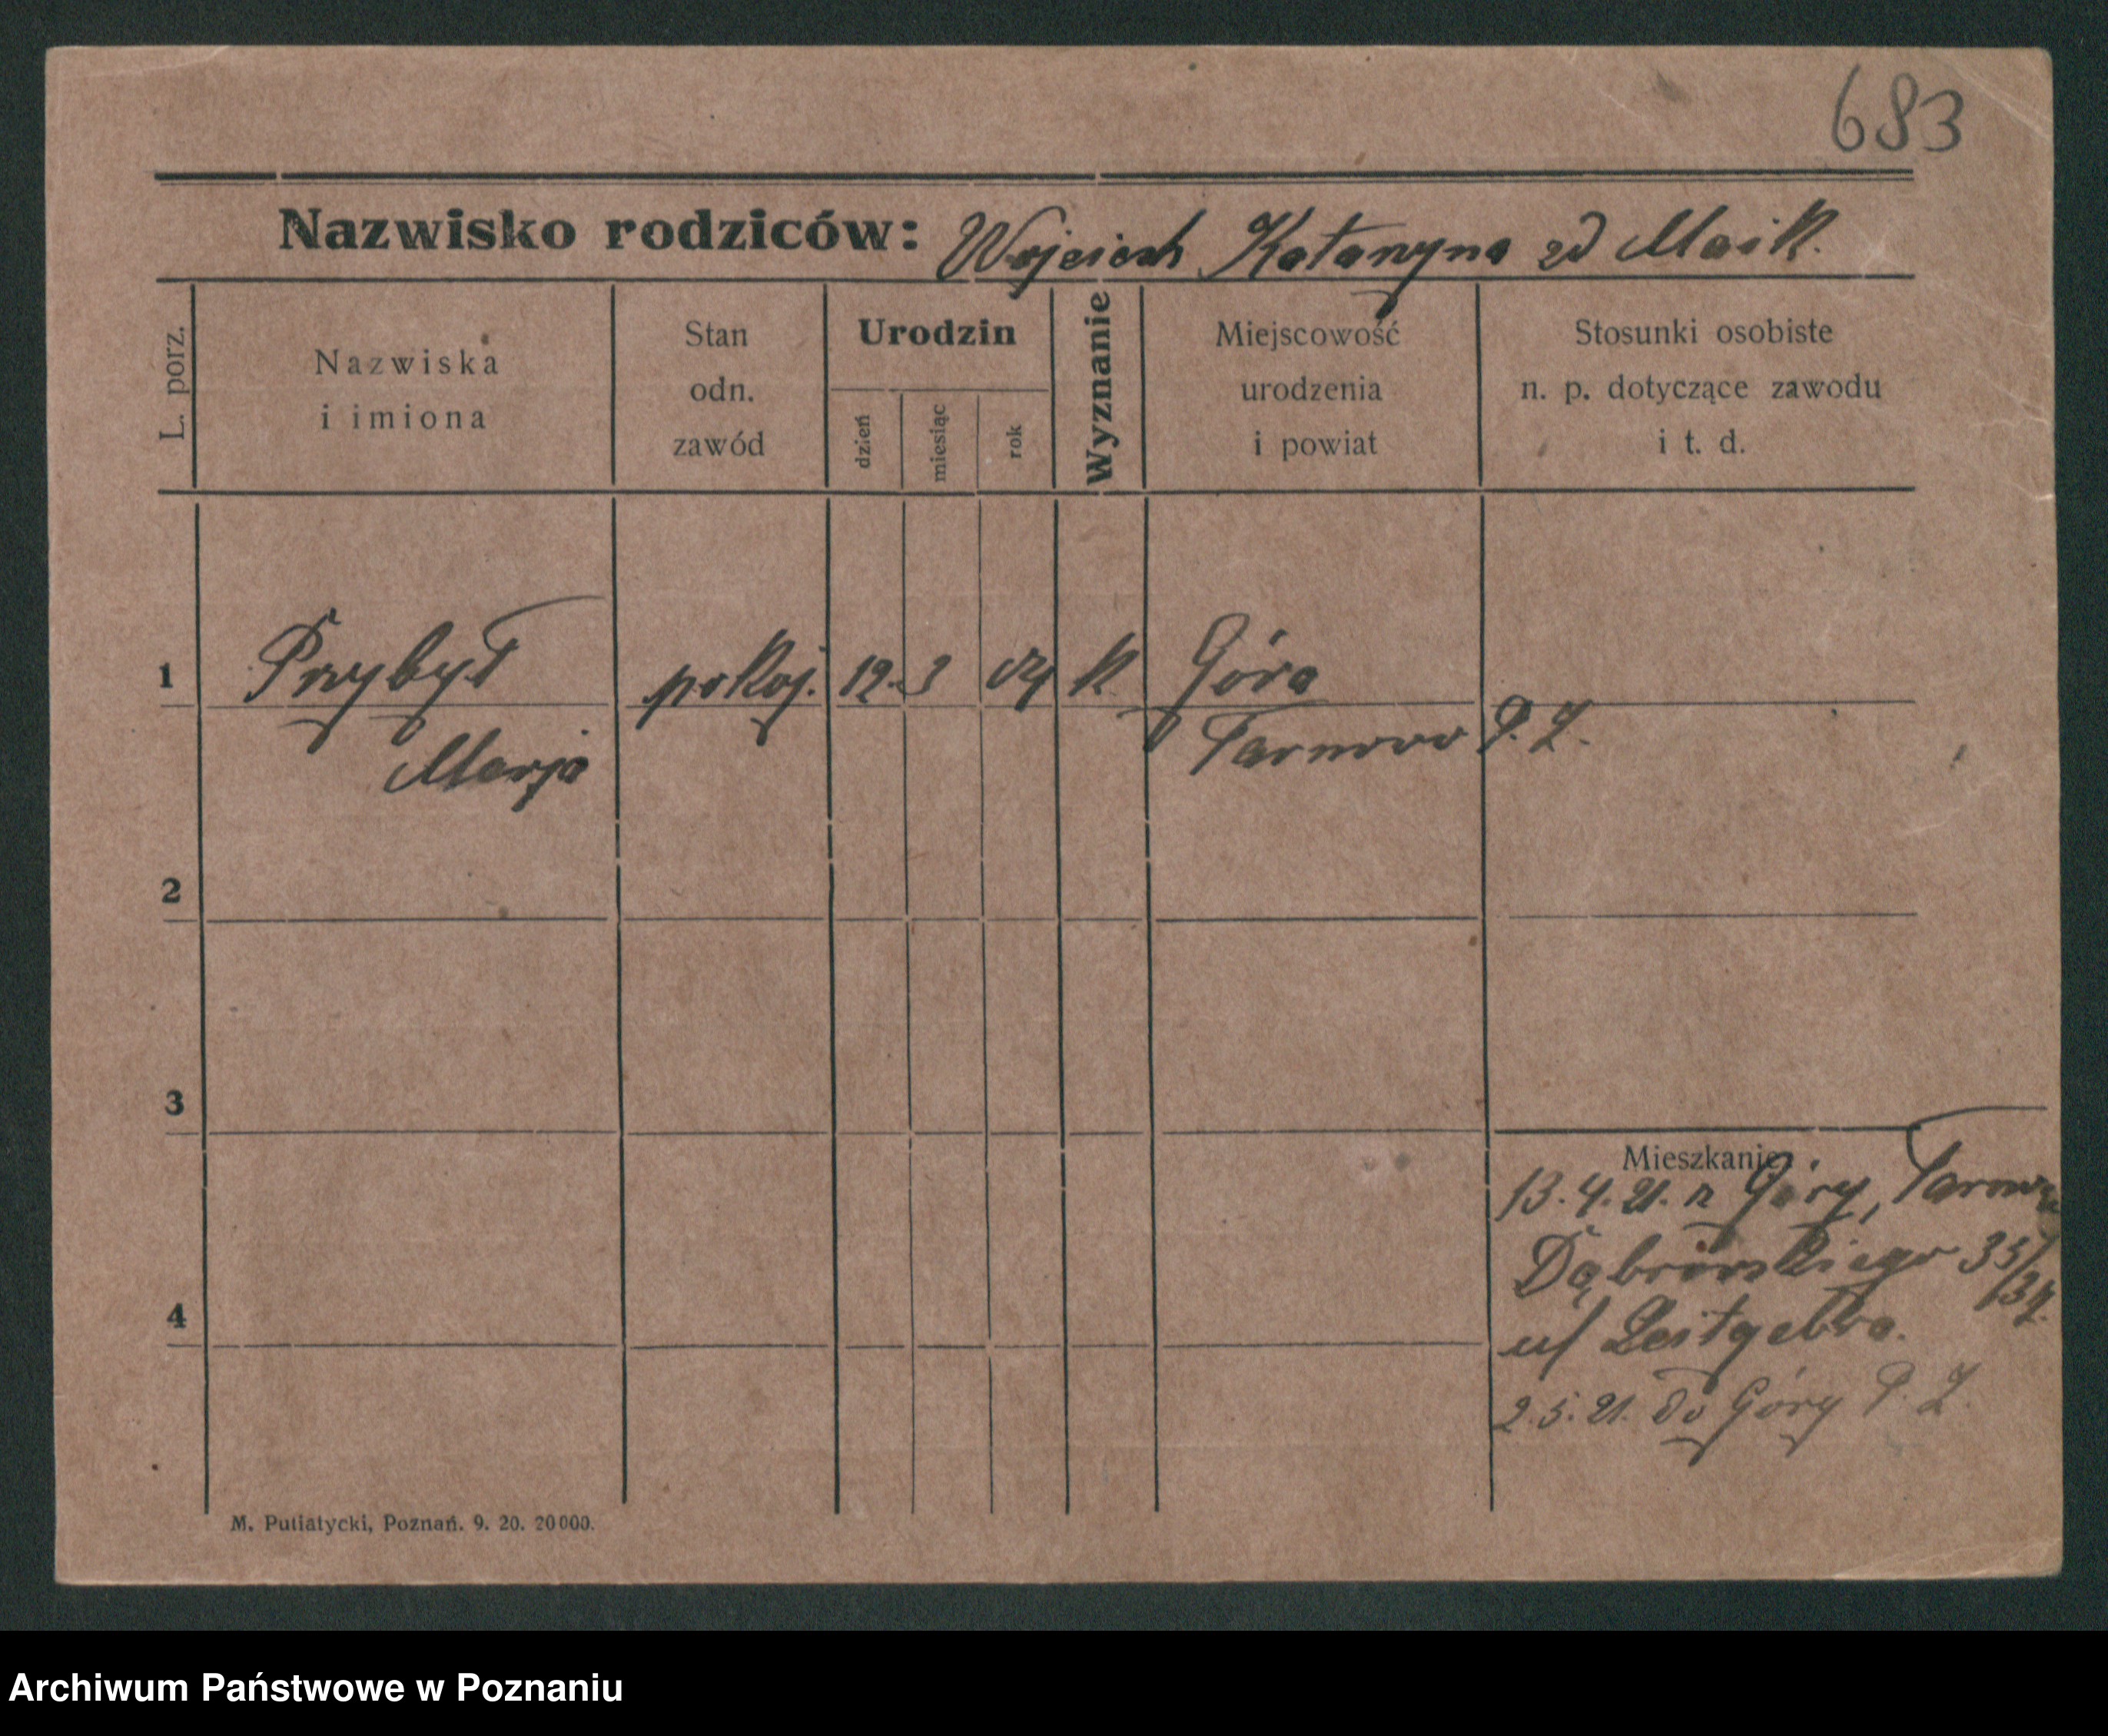 683
Nazwisko rodziców: Wojciech Katarzyna zd Maik.
L. porz.
Nazwiska
i imiona
Stan
odn.
zawód
Urodzin
dzień
miesiąc
rok
Wyznanie
Miejscowość
urodzenia
i powiat
Stosunki osobiste
n. p. dotyczące zawodu
i t. d.
1 Przybył pokoj. 12. 3 k Góra
Marja Tarnowo P. Z.
2
3
Mieszkanie
13. 4. 21. z Góry, Tarnowo
Dąbrowskiego 35/
/34.
4
u/ Leitgebra.
2. 5. 21. do Góry P. Z.
M. Putiatycki, Poznań. 9. 20. 20000.
Archiwum Państwowe w Poznaniu